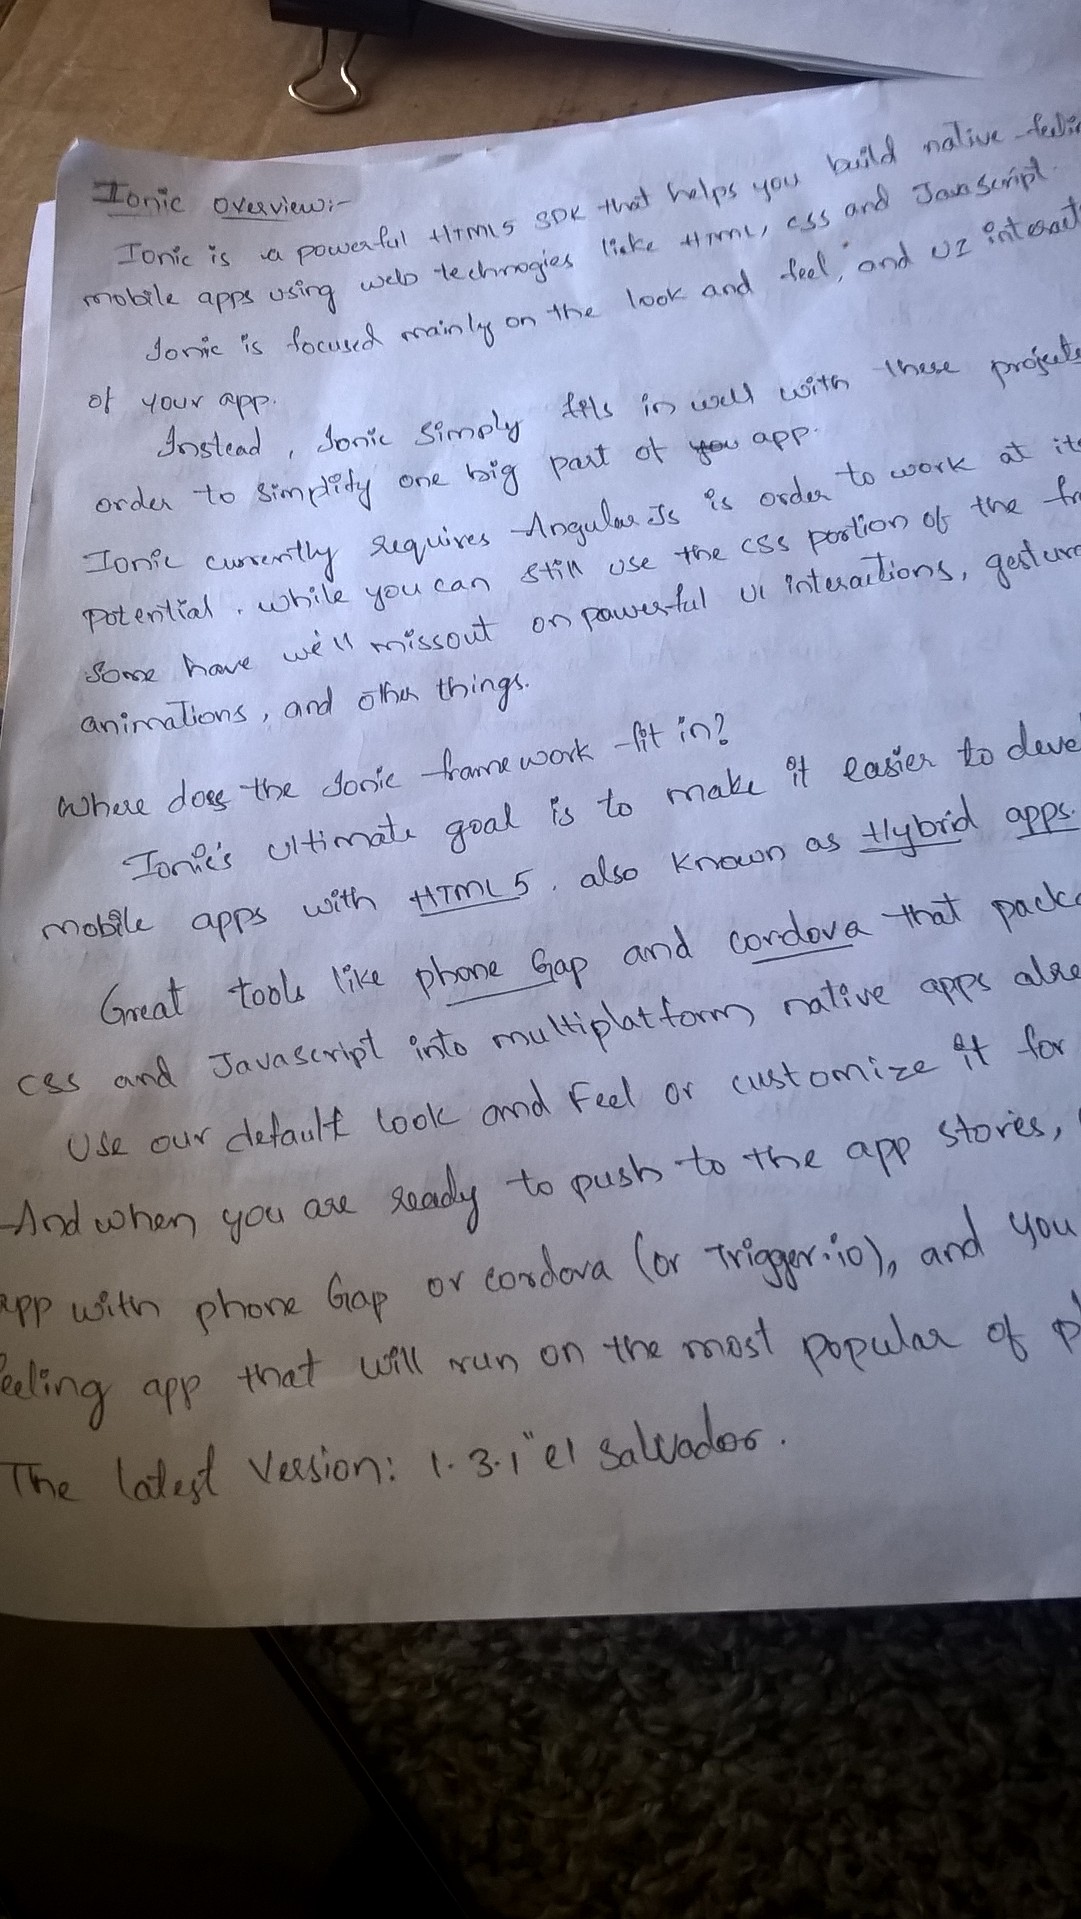 Ionic overview:-
Ionic is a powerful HTML5 SDK that helps you build native feelin
mobile apps using web technogies like HTML, CSS and JavaScript.
Ionic is focused mainly on the look and feel, and UI interact
of your app.
Instead, Ionic simply fits in well with these projects
order to simplify one big part of you app.
Ionic currently requires AngularJs is order to work at its
potential. while you can still use the CSS portion of the fra
Some have we'll missout on powerful UI interactions, gesture
animations, and other things.
Where does the Ionic framework fit in?
Ionic's ultimate goal is to make it easier to deve
mobile apps with HTML5, also known as Hybrid apps.
Great tools like phone Gap and cordova that packa
css and Javascript into multiplatform native apps alre
Use our default look and Feel or customize it for
And when you are ready to push to the app stores,
app with phone Gap or cordova (or Trigger.io), and you
eeling app that will run on the most popular of pl
The latest Version: 1.3.1 "el Salvador.